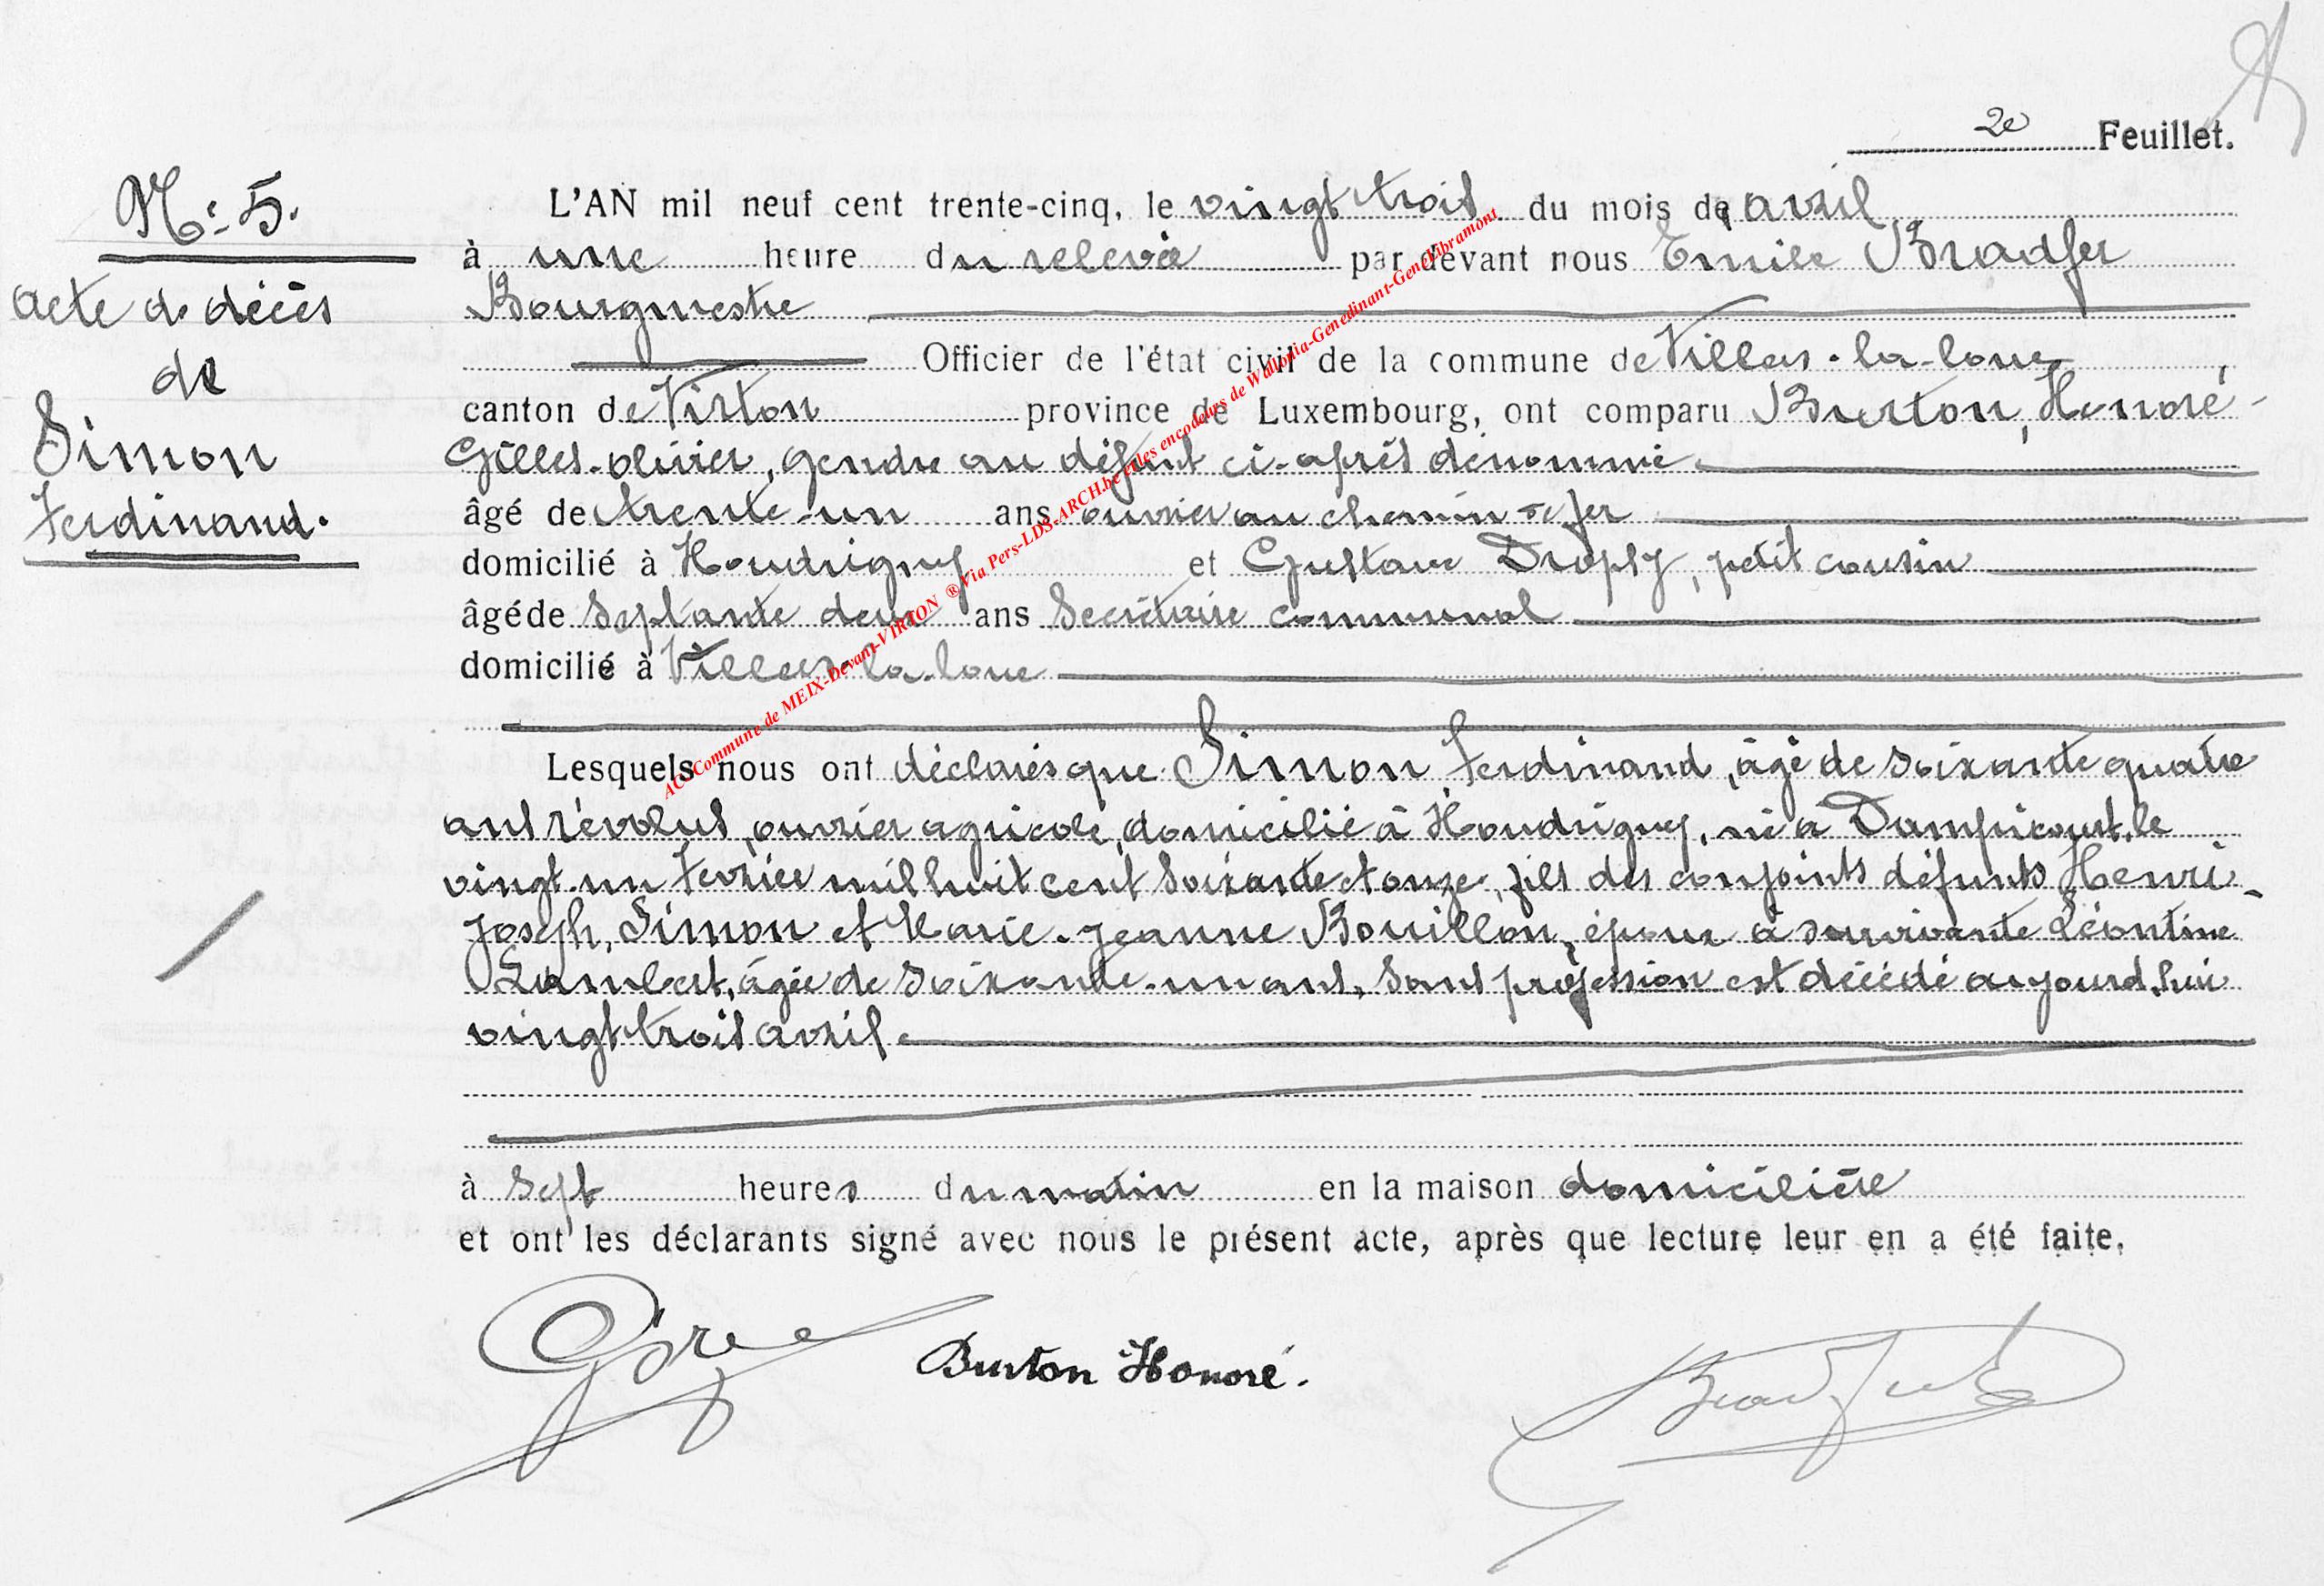 2e Feuillet.
N: 5.
Acte de décès
de
Simon
Ferdinand.
L'AN mil neuf cent trente-cinq, le vingt trois du mois de avril
à une heure du relevée par devant nous Emile Bradfer
Bourgmestre
Officier de l'état civil de la commune de Villers-la-loue
canton de Virton province de Luxembourg, ont comparu Burton, Honoré-
Gilles-olivier, gendre au défunt ci-après dénommé
âgé de trente-un ans ouvrier au chemin de fer
domicilié à Houdrigny et Gustave Dropsy, petit cousin
âgé de septante deux ans Secrétaire communal
domicilié à Villers-la-loue
Lesquels nous ont déclarés que Simon Ferdinand, âgé de soixante quatre
ans révolus, ouvrier agricole, domicilié à Houdrigny, né à Dampicourt, le
vingt-un février mil huit cent soixante et onze, fils des conjoints défunts Henri-
Joseph, Simon et Marie-Jeanne Bouillon, époux à survivante Léontine
Lambert, âgée de soixante-un ans, sans profession est décédé aujourd'hui
vingt trois avril
à sept heures du matin en la maison domicilière
et ont les déclarants signé avec nous le présent acte, après que lecture leur en a été faite.
Burton Honoré.
Bradfer
AC-Commune de MEIX-Devant-VIRTON ® Via Pers-LDS-ARCH.be et les encodeurs de Wallonia-Genedinant-GeneLibramont